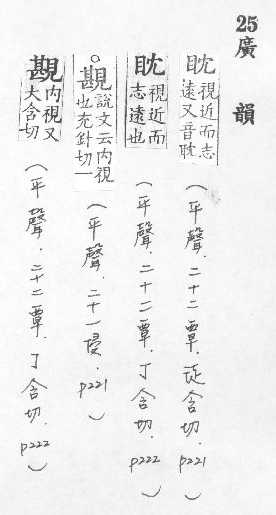 25廣 韻
眈視近而志
遠又音耽
(平聲．二十二覃．徒含切．p221)
眈視近而
志遠也
(平聲．二十二覃．丁含切．p222)
○說文云內視
也充針切一
(平聲．二十一侵．p221)
內視又
大含切
(平聲．二十二覃．丁含切．p222)